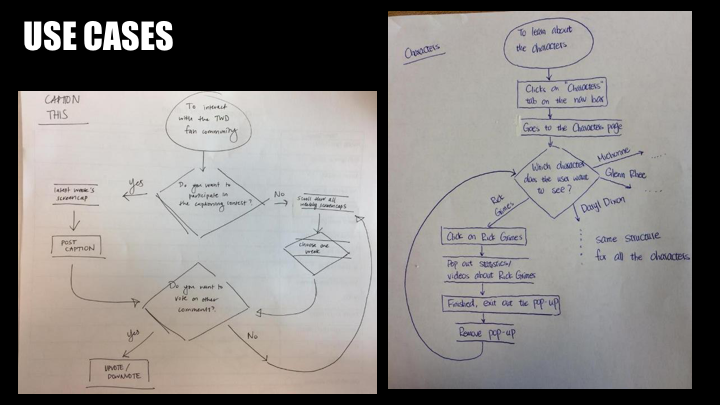 USE CASES
CAPTION
THIS
To interact
with the TWD
fan community
Do you want to
participate in
the captioning contest?
Yes
No
latest week's
screencap
POST
CAPTION
Scroll thru all
weekly screencaps
choose one
week
Do you want to
vote on other
comments?
Yes
No
UPVOTE/
DOWNVOTE
Characters
To learn about
the characters
Clicks on "Characters"
tab on the nav bar
Goes to the Characters page
Which character
does the user want
to see?
Michonne
.....
Glenn Rhee
.....
Daryl Dixon
Rick
Grimes
same structure
for all the characters
Click on Rick Grimes
Pop out statistics/
videos about Rick Grimes
Finished, exit out the pop-up
Remove pop-up